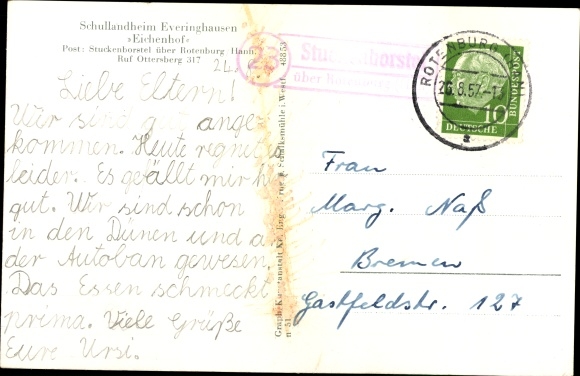 Schullandheim Everinghausen
»Eichenhof«
Post: Stuckenborstel über Rotenburg Hann.
Ruf Ottersberg 317
Liebe Eltern!
Wir sind gut ange-
kommen. Heute regnet es
leider. Es gefällt mir hi
gut. Wir sind schon
in den Dünen und a
der Autoban gewesen.
Das Essen schmeckt
prima. Viele Grüße
Eure Ursi.
48853
n 51
23
Stuckenborstel
über Rotenburg
ROTENBURG
26.8.57.-13
a
10
DEUTSCHE
BUNDESPOST
Frau
Marg. Naß
Bremen
Gastfeldstr. 127